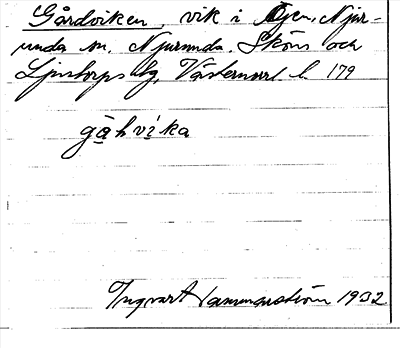 Gårdviken, vik i Öjen, Njur-
unda sn. Njurunda, Sköns och
Ljustorps tg, Västernorrl. l. 179
gåhvika
Ingvart 1932